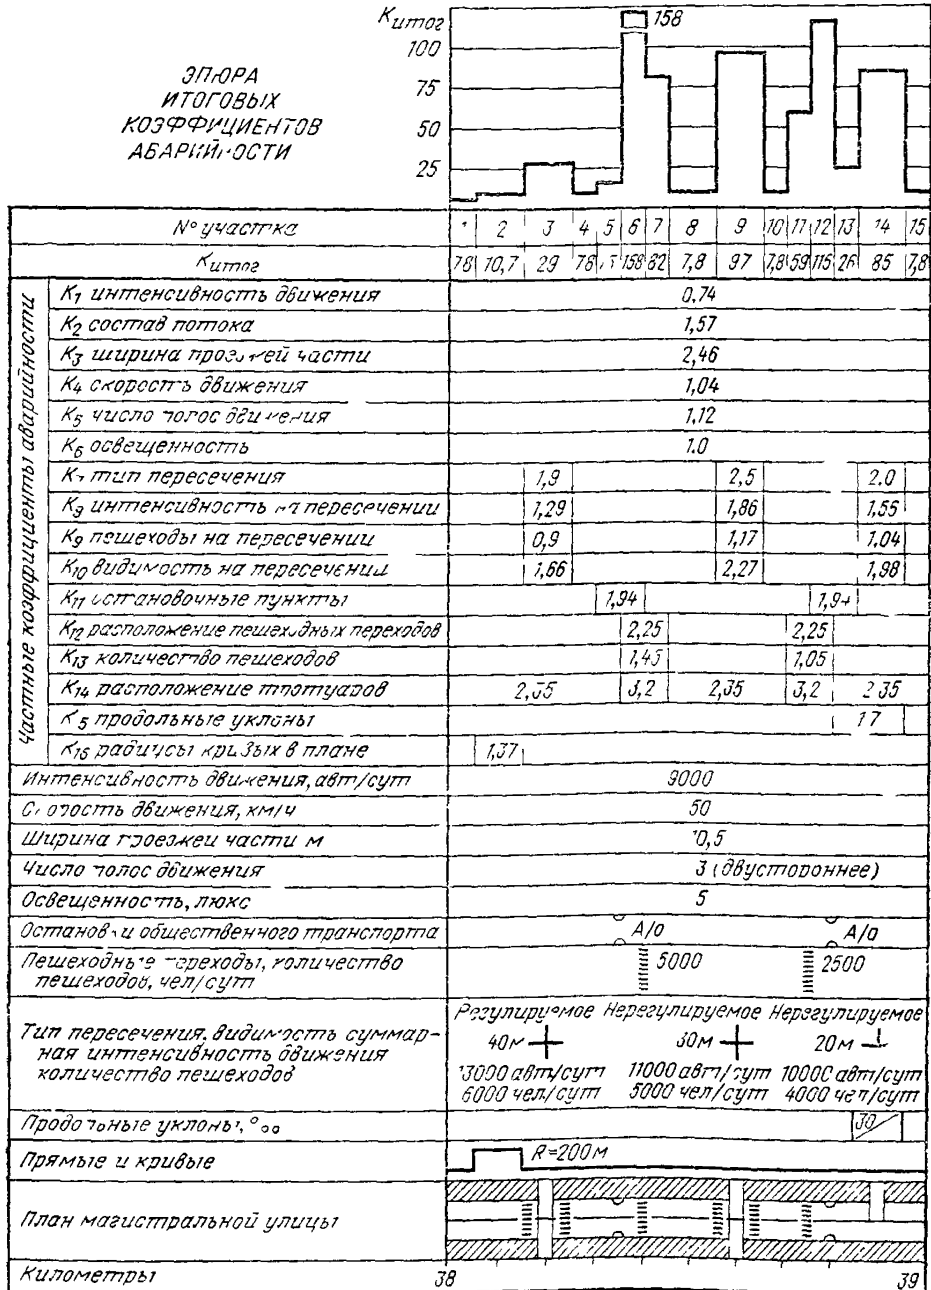 Kитог
158
100
75
50
25
ЭПЮРА
ИТОГОВЫХ
КОЭФФИЦИЕНТОВ
АВАРИЙНОСТИ
№ участка 1 2 3 4 5 6 7 8 9 10 11 12 13 14 15
Kитог 78 10,7 29 78 158 82 7,8 97 7,8 59 115 26 85 7,8
Частные коэффициенты аварийности
K1 интенсивность движения 0,74
K2 состав потока 1,57
K3 ширина проезжей части 2,46
K4 скорость движения 1,04
K5 число полос движения 1,12
K6 освещенность 1.0
K7 тип пересечения 1,9 2,5 2.0
K9 интенсивность на пересечении 1,29 1,86 1,55
K9 пешеходы на пересечении 0,9 1,17 1.04
K10 видимость на пересечении 1,66 2,27 1,98
K11 остановочные пункты 1,94 1,94
K12 расположение пешеходных переходов 2,25 2,25
K13 количество пешеходов 1,45 1,05
K14 расположение тротуаров 2,35 3,2 2,35 3,2 2 35
K 5 продольные уклоны 1 7
K16 радиусы кривых в плане 1,37
Интенсивность движения, авт/сут 9000
Скорость движения, км/ч 50
Ширина проезжей части м 10,5
Число полос движения 3 (двустороннее)
Освещенность, люкс 5
Остановки общественного транспорта А/о А/о
Пешеходные переходы, количество 5000 2500
пешеходов, чел/сут
Регулируемое Нерегулируемое Нерегулируемое
Тип пересечения, видимость суммар-
40м 30м 20м
ная интенсивность движения
количество пешеходов
13000 авт/сут 11000 авт/сут 10000 авт/сут
6000 чел/сут 5000 чел/сут 4000 чел/сут
Продольные уклоны, ‰ 30
Прямые и кривые R=200м
План магистральной улицы
Километры 38 39